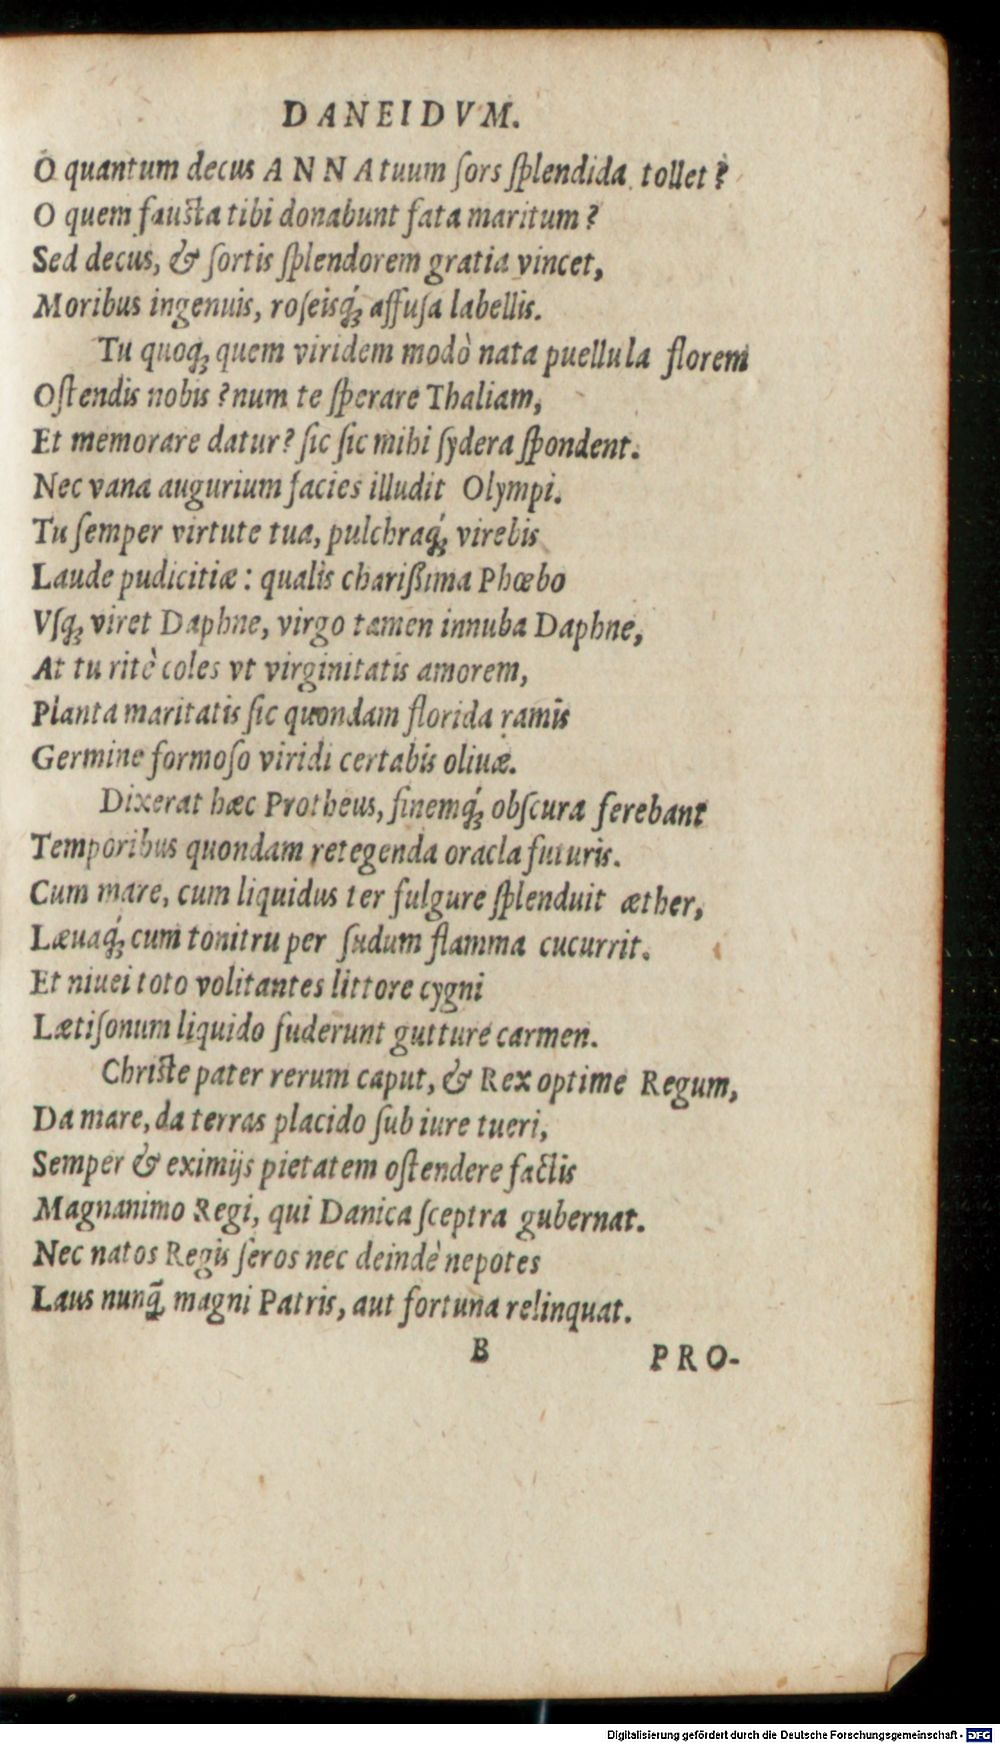 DANEIDVM.
O quantum decus ANNA tuum ſors ſplendida tollet?
O quem fauſta tibi donabunt fata maritum?
Sed decus, & ſortis ſplendorem gratia vincet,
Moribus ingenuis, roſeisq́; affuſa labellis.
Tu quoq; quem viridem modò nata puellula florem
Oſtendis nobis? num te ſperare Thaliam,
Et memorare datur? ſic ſic mihi ſydera ſpondent.
Nec vana augurium facies illudit Olympi.
Tu ſemper virtute tua, pulchraq́; virebis
Laude pudicitiæ: qualis chariſsima Phœbo
Vſq; viret Daphne, virgo tamen innuba Daphne,
At tu ritè coles vt virginitatis amorem,
Planta maritatis ſic quondam florida ramis
Germine formoſo viridi certabis oliuæ.
Dixerat hæc Protheus, finemq́; obſcura ferebant
Temporibus quondam retegenda oracla futuris.
Cum mare, cum liquidus ter fulgure ſplenduit æther,
Læuaq́; cum tonitru per ſudum flamma cucurrit.
Et niuei toto volitantes littore cygni
Lætiſonum liquido fuderunt gutture carmen.
Chriſte pater rerum caput, & Rex optime Regum,
Da mare, da terras placido ſub iure tueri,
Semper & eximijs pietatem oſtendere factis
Magnanimo Regi, qui Danica ſceptra gubernat.
Nec natos Regis ſeros nec deindè nepotes
Laus nunq̃; magni Patris, aut fortuna relinquat.
B PRO-
Digitalisierung gefördert durch die Deutsche Forschungsgemeinschaft - DFG